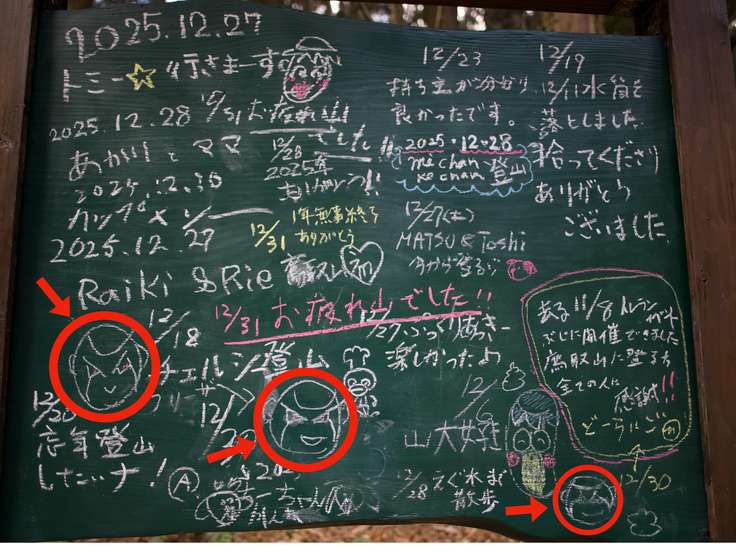 2025.12.27
トミー☆ 行きまーす
2025.12.28
あかりとママ
2025.12.30
カップ
2025.12.27
Raiki & Rie
12/31 お疲れ山
でした!!
12/28
2025年
ありがとう!!
12/31
1年無事終了
ありがとう
12/31 お疲れ山でした!!
12/18
チェルシー登山
12/30
忘年登山
したいナ!
A
12/23
持ち主が分かり
良かったです。
2025.12.28
me chan
ke chan 登山
12/27(土)
MATSU & Toshi
今から登るゾ
楽しかったよ
12/6
山大好
12/28
散歩
12/19
12/11 水筒を
落としました
拾ってくださり
ありがとう
ございました
ある 11/8 トレランガイド
ぶじに開催できました
鷹取山に登る
全ての人に
感謝!!
どーらんご
12/30